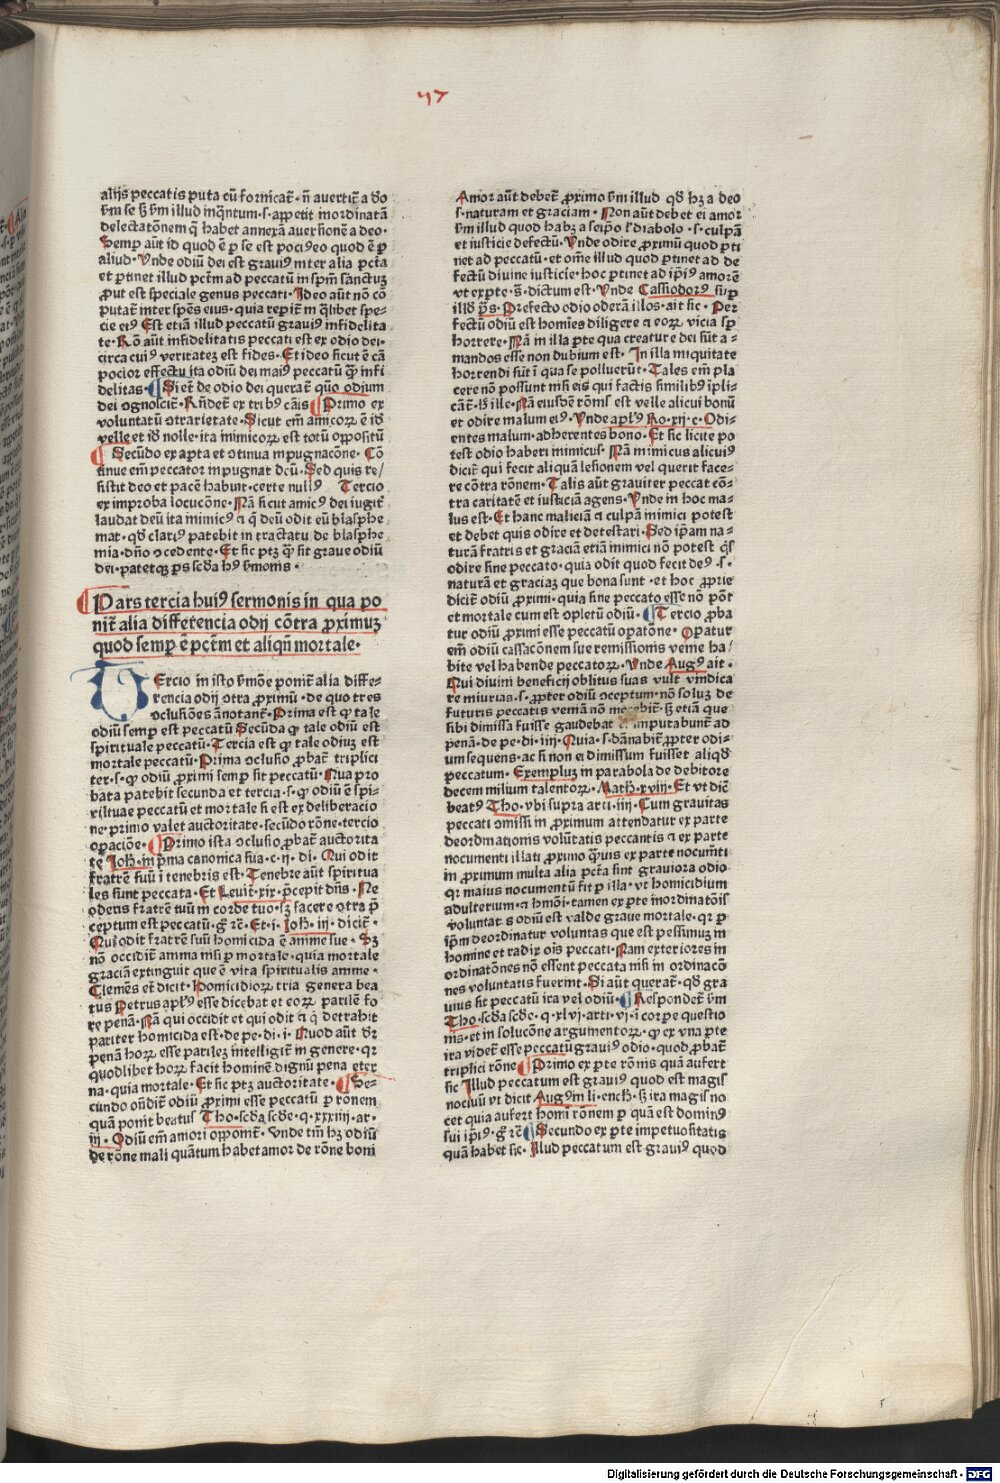 47
alijs peccatis puta cū fornicat᷒ · n̄ auertit᷒ a deo
s̄m se ꝫ s̄m illud inq̈ntum · s · appetit inordinatā
delectatōnem q̄ habet annexā auersionē a deo ·
Semꝑ aūt id quod ē ꝑ se est pociꝰ eo quod ē ꝑ
aliud · Unde odiū dei est grauiꝰ inter alia pctā
et ꝑtinet illud pctm̄ ad peccatū in spm̄ sanctuꝫ
ꝓut est speciale genus peccati · Ideo aūt nō cō
putat᷒ inter spēs eius · quia reperit᷒ in q̄libet spe-
cie eiꝰ Est etiā illud peccatū grauiꝰ infidelita
te · Rō aūt infidelitatis peccati est ex odio dei ·
circa cuiꝰ veritateꝫ est fides · Et ideo sicut ē cā
pocior effectu ita odiū dei maiꝰ peccatū ꝙ̄ infi
delitas · ¶ Si et̄ de odio dei querat᷒ quō odium
dei ↄgnoscit᷒ · Rn̄det᷒ ex tribꝰ cāis ¶ Primo ex
voluntatū ↄtrarietate · Sicut em̄ amicoꝝ ē idē
velle et idē nolle · ita inimicoꝝ est totū oppositū
¶ Secūdo ex aꝑta et ↄtinua inpugnacōne · Cō
tinue em̄ peccator inpugnat deū · Sed quis re/
sistit deo et pacē habuit · certe nullꝰ Tercio
ex improba locucōne · Nā sicut amicꝰ dei iugit᷒
laudat deū ita inimicꝰ ⁊ q̇ deū odit eū blasphe
mat · qd̄ clariꝰ patebit in tractatu de blasphe
mia · dn̄o ↄcedente · Et sic ptꝫ ꝙ̄ sit graue odiū
dei · patetqꝫ ps scd̄a hꝰ s̄monis ·
¶ Pars tercia huiꝰ sermonis in qua po
nit᷒ alia differencia odij cōtra ꝓximuꝫ
quod semꝑ ē pctm̄ et aliqn̄ mortale ·
TErcio in isto s̄mōe ponit᷒ alia diffe-
rencia odij ↄtra ꝓximū · de quo tres
ↄclusiōes ānotant᷒ · Prima est ꝙ tale
odiū semꝑ est peccatū Secūda ꝙ tale odiū est
spirituale peccatū · Tercia est ꝙ tale odiuꝫ est
mortale peccatū · Prima ↄclusio ꝓbat᷒ triplici
ter · s · ꝙ odiū ꝓximi semꝑ sit peccatū · Qua pro
bata patebit secunda et tercia · s · ꝙ odiū ē spi-
rituale peccatū et mortale si est ex deliberacio
ne · primo valet auctoritate · secūdo rōne · tercio
oꝑaciōe · ¶ Primo ista ↄclusio ꝓbat᷒ auctorita
te Joh̄ · in pͥma canonica sua · c · ij · di · Qui odit
fratrē suū ī tenebris est · Tenebre aūt spiritua
les sunt peccata · Et Leuit᷒ · xix · p̄cepit dn̄s · Ne
oderis fratrē tuū in corde tuo · sꝫ facere ↄtra p̄
ceptum est peccatū · g̈ rc̄ · Et · i · Joh̄ · iij · dicit᷒ ·
Qui odit fratrē suū homicida ē anime sue · Sꝫ
nō occidit᷒ anima nisi ꝑ mortale · quia mortale
graciā extinguit que ē vita spiritualis anime ·
Clemēs et̄ dicit · Homicidioꝝ tria genera bea
tus Petrus apl̄s esse dicebat et eoꝝ parilē fo
re penā · Nā qui occidit et qui odit ⁊ q̇ detrahit
pariter homicida est · de pe · di · i · Quod aūt dr̄
penā hoꝝ esse parileꝫ intelligit᷒ in genere · qr
quodlibet hoꝝ facit hominē dignū pena eter
na · quia mortale · Et sic ptꝫ auctoritate · ¶ Se-
cundo on̄dit᷒ odiū ꝓximi esse peccatū ꝑ rōnem
quā ponit beatus Tho · scd̄a scd̄e · q · xxxiiij · ar ·
iij · Odiū em̄ amori opponit᷒ · Unde tm̄ hꝫ odiū
de rōne mali quāntum habet amor de rōne boni
Amor aūt debet᷒ ꝓximo s̄m illud qd̄ hꝫ a deo
s · naturam et graciam · Non aūt debet ei amor
s̄m illud quod habꝫ a seipō ꝉ diabolo · s · culpā
et iusticie defectū · Unde odire ꝓximū quod ꝑti
net ad peccatū · et om̄e illud quod ꝑtinet ad de
fectū diuine iusticie · hoc ꝑtinet ad ip̄iꝰ amorē
vt ex ꝑte · s̄ · dictum est · Unde Cassiodorꝰ suꝑ
illd̄ ps̄ · Perfecto odio oderā illos · ait sic · Per
fectū odiū est homīes diligere ⁊ eoꝝ vicia sꝑ
horrere · Nā in illa ꝑte qua creature dei sūt a-
mandos esse non dubium est · In illa iniquitate
horrendi sūt ī qua se polluerūt · Tales em̄ pla
cere nō possunt nisi eis qui factis similibꝰ īpli-
cāt᷒ · h̄ ille · Nā eiusdē rōnis est velle alicui bonū
et odire malum eiꝰ · Unde apl̄s Ro · xij · c · Odi-
entes malum · adherentes bono · Et sic licite po
test odio haberi inimicus · Nā inimicus alicuiꝰ
dicit᷒ qui fecit aliquā lesionem vel querit face-
re cōtra rōnem · Talis aūt grauiter peccat cō-
tra caritatē et iusticiā agens · Unde in hoc ma-
lus est · Et hanc maliciā ⁊ culpā inimici potest
et debet quis odire et detestari · Sed ip̄am na-
turā fratris et graciā etiā inimici nō potest q̇s
odire sine peccato · quia odit quod fecit deꝰ · s ·
naturā et graciaꝫ que bona sunt · et hoc ꝓprie
dicit᷒ odiū ꝓximi · quia sine peccato esse nō pōt
et mortale cum est ↄpletū odiū · ¶ Tercio ꝓba
tur odiū ꝓximi esse peccatū oꝑatōne · Oꝑatur
em̄ odiū cassacōnem sue remissionis venie ha/
bite vel habende peccatoꝝ · Unde Augꝰ ait ·
Qui diuini beneficij oblitus suas vult vindica
re iniurias · s · ꝓpter odiū ↄceptum · nō soluꝫ de
futuris peccatis veniā nō merebit᷒ · sꝫ etiā que
sibi dimissa fuisse gaudebat imputabunt᷒ ad
penā · de pe · di · iiij · Quia · s · dānabit᷒ ꝓpter odi-
um sequens · ac si non ei dimissum fuisset aliqd̄
peccatum · Exempluꝫ in parabola de debitore
decem milium talentoꝝ · Math̄ · xviij · Et vt diē
beatꝰ Tho · vbi supra arti · iiij · Cum grauitas
peccati ↄmissi in ꝓximum attendatur ex parte
deordinationis volūtatis peccantis ⁊ ex parte
nocumenti illati ꝓximo q̄uis ex parte nocum̄ti
in ꝓximum multa alia pctā sint grauiora odio
qꝛ maius nocumentū fit ꝑ illa · vt homicidium
adulterium · ⁊ hm̄oi · tamen ex ꝑte inordinatōis
voluntat᷒s odiū est valde graue mortale · qꝛ ꝑ
ip̄m deordinatur voluntas que est pessimuꝫ in
homine et radix oīs peccati · Nam exteriores in
ordinatōnes nō essent peccata nisi in ordinacō
nes voluntatis fuerint · Si aūt querat᷒ · qd̄ gra
uius sit peccatū ira vel odiū · ¶ Respondet᷒ s̄m
Tho · scd̄a scd̄e · q · xlvj · arti · vj · ī corpe questio
nis · et in solucōne argumentoꝝ · ꝙ ex vna ꝑte
ira videt᷒ esse peccatū grauiꝰ odio · quod ꝓbat᷒
triplici rōne ¶ Primo ex ꝑte rōnis quā aufert
sic Illud peccatum est grauiꝰ quod est magis
nociuū vt dicit Augꝰ in li · ench · sꝫ ira magis no
cet quia aufert homī rōnem ꝑ quā est dominꝰ
sui ip̄iꝰ · g̈ rc̄ ¶ Secundo ex ꝑte impetuositatis
quā habet sic · Illud peccatum est grauiꝰ quod
Digitalisierung gefördert durch die Deutsche Forschungsgemeinschaft - DFG